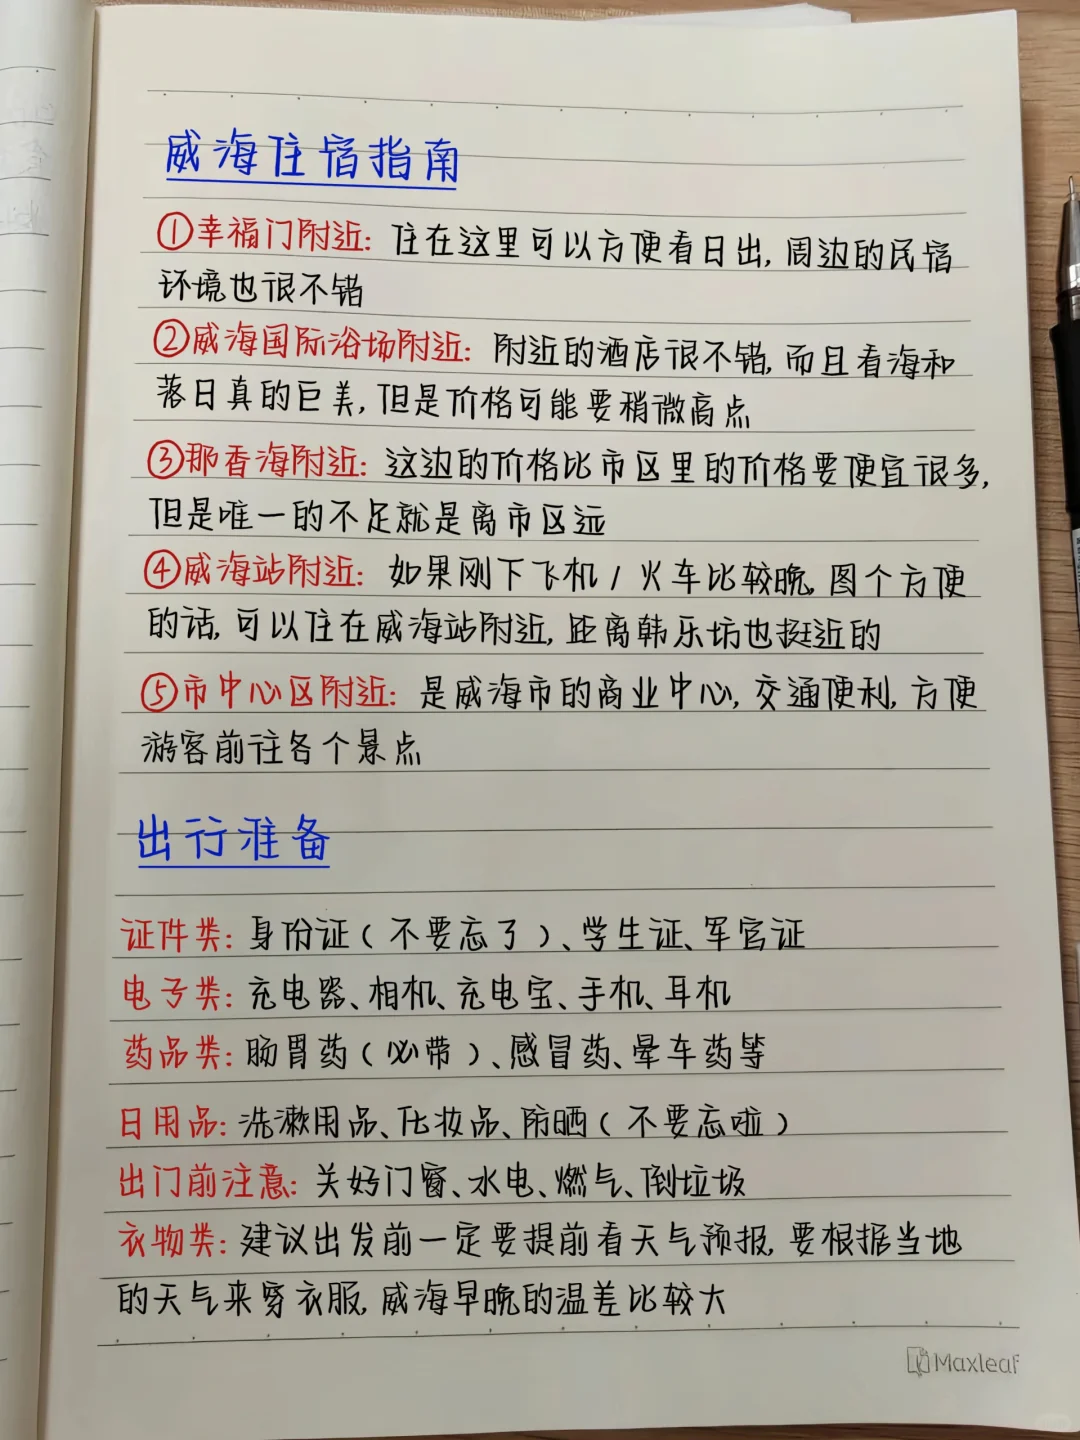 威海住宿指南
①幸福门附近: 住在这里可以方便看日出, 周边的民宿
环境也很不错
②威海国际浴场附近: 附近的酒店很不错, 而且看海和
落日真的巨美, 但是价格可能要稍微高点
③那香海附近: 这边的价格比市区里的价格要便宜很多,
但是唯一的不足就是离市区远
④威海站附近: 如果刚下飞机/火车比较晚, 图个方便
的话, 可以住在威海站附近, 距离韩乐坊也挺近的
⑤市中心区附近: 是威海市的商业中心, 交通便利, 方便
游客前往各个景点
出行准备
证件类: 身份证(不要忘了)、学生证、军官证
电子类: 充电器、相机、充电宝、手机、耳机
药品类: 肠胃药(必带)、感冒药、晕车药等
日用品: 洗漱用品、化妆品、防晒(不要忘啦)
出门前注意: 关好门窗、水电、燃气、倒垃圾
衣物类: 建议出发前一定要提前看天气预报, 要根据当地
的天气来穿衣服, 威海早晚的温差比较大
Maxleaf